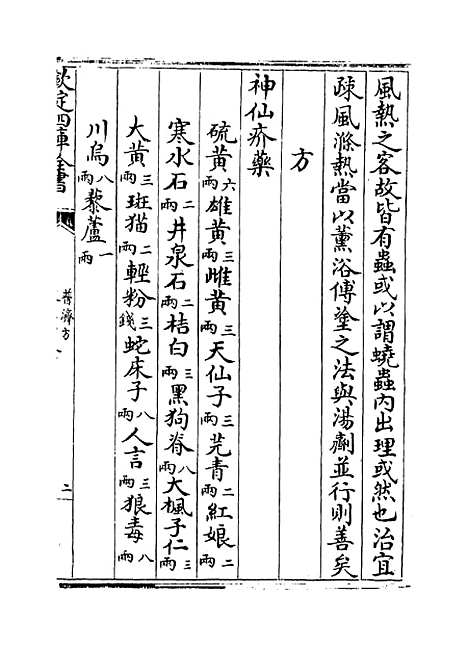 風熱之客故皆有蟲或以謂蟯蟲内出理或然也治宜
疎風滌熱當以薰浴傅塗之法與湯劑並行則善矣
方
神仙疥藥
硫黄六兩雄黄三兩雌黄三兩天仙子三兩芫青二兩紅娘二兩
寒水石二兩井泉石二兩桔白三兩黑狗脊八兩大楓子仁三兩
大黄三兩斑猫二兩輕粉三錢蛇床子八兩人言三兩狼毒八兩
川烏八兩藜蘆一兩
欽定四庫全書
普濟方
二